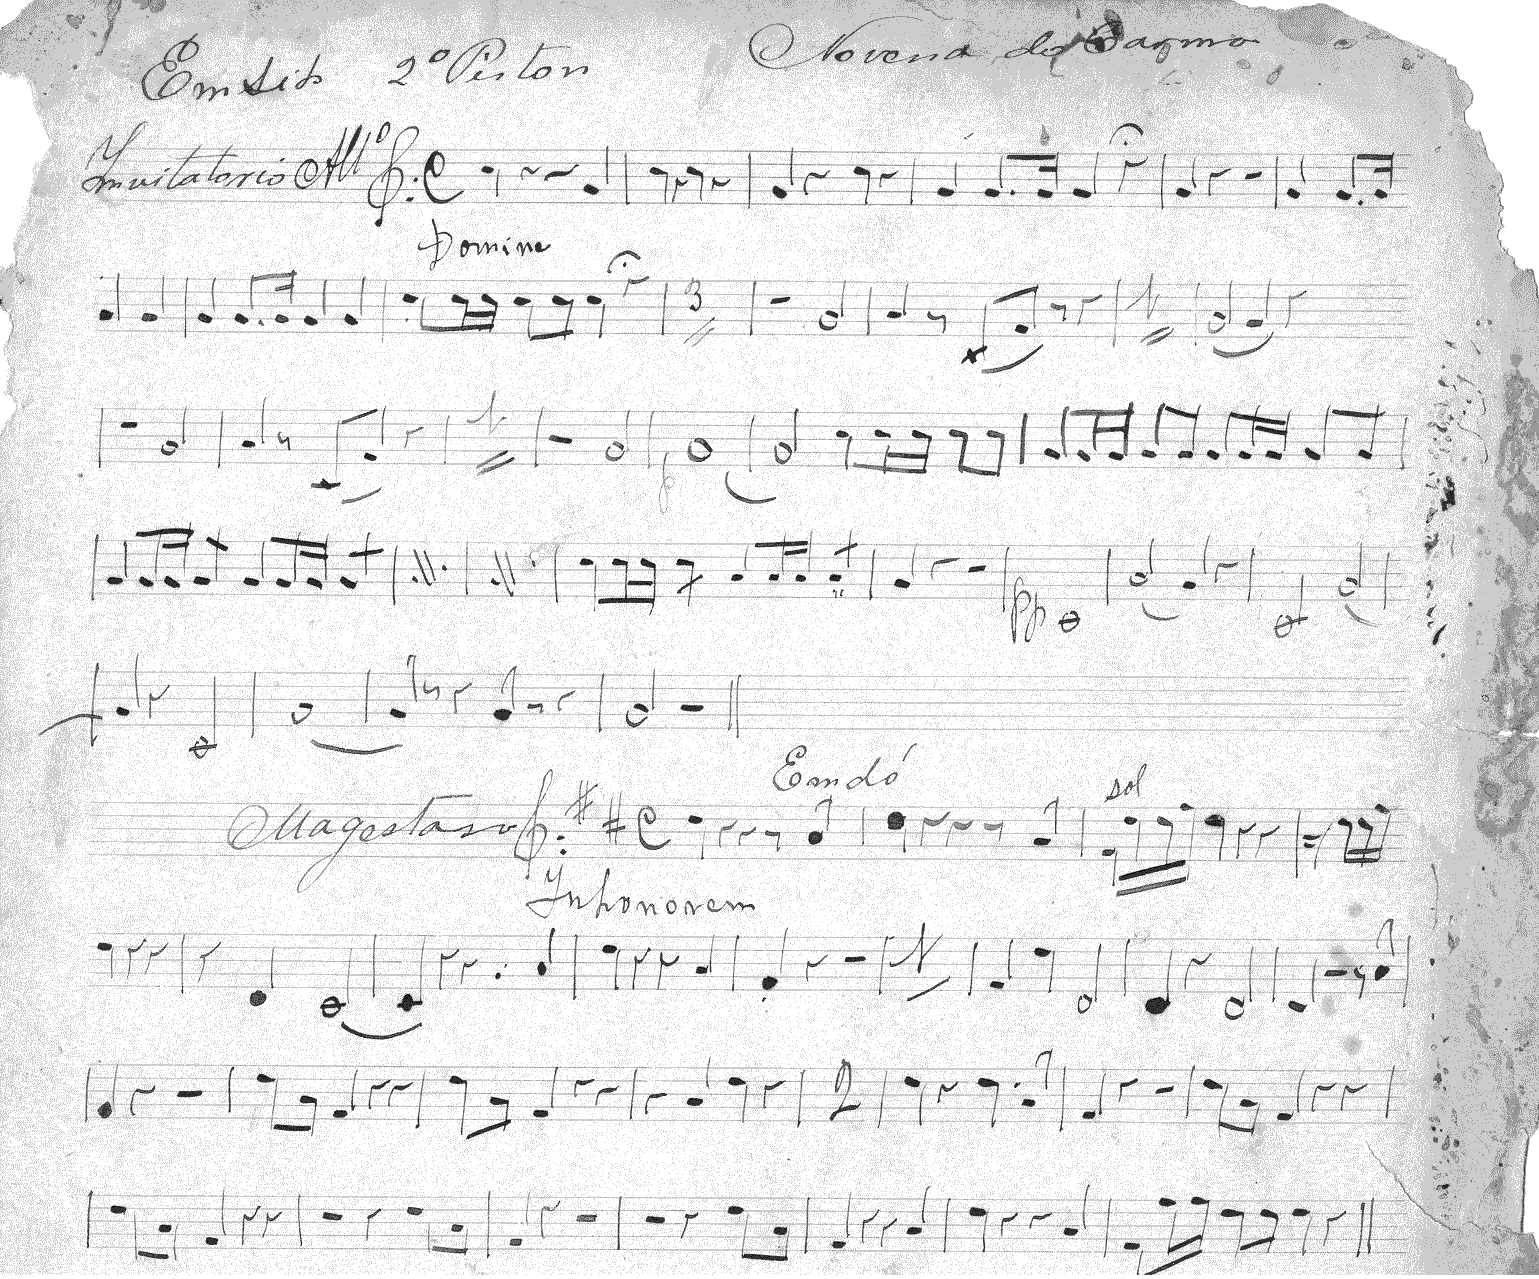 Em Sib 2º Piston Novena do Carmo
Invitatorio All.º
Domine
3
p
pp
Em dó
sol
Magestaso
In honorem
2